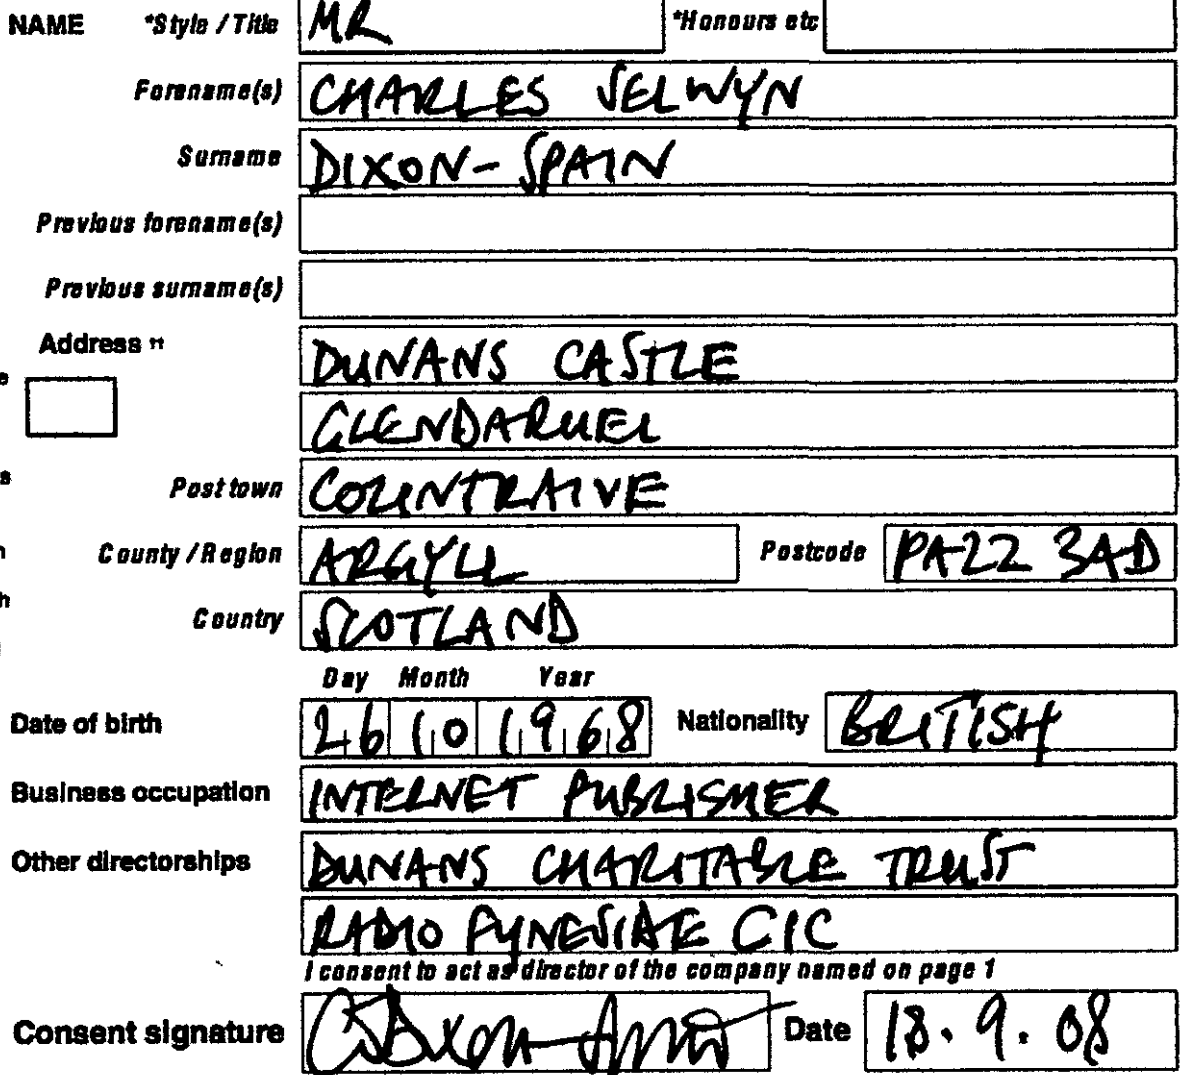 NAME *Style / Title MR *Honours etc
Forename(s) CHARLES SELWYN
Surname DIXON-SPAIN
Previous forename(s)
Previous surname(s)
Address ††
DUNANS CASTLE
GLENDARUEL
Post town COLINTRAIVE
County / Region ARGYLL Postcode PA22 3AD
Country SCOTLAND
Day Month Year
Date of birth 26 10 1968 Nationality BRITISH
Business occupation INTERNET PUBLISHER
Other directorships DUNANS CHARITABLE TRUST
RADIO FYNESIDE CIC
I consent to act as director of the company named on page 1
Consent signature Date 18.9.08